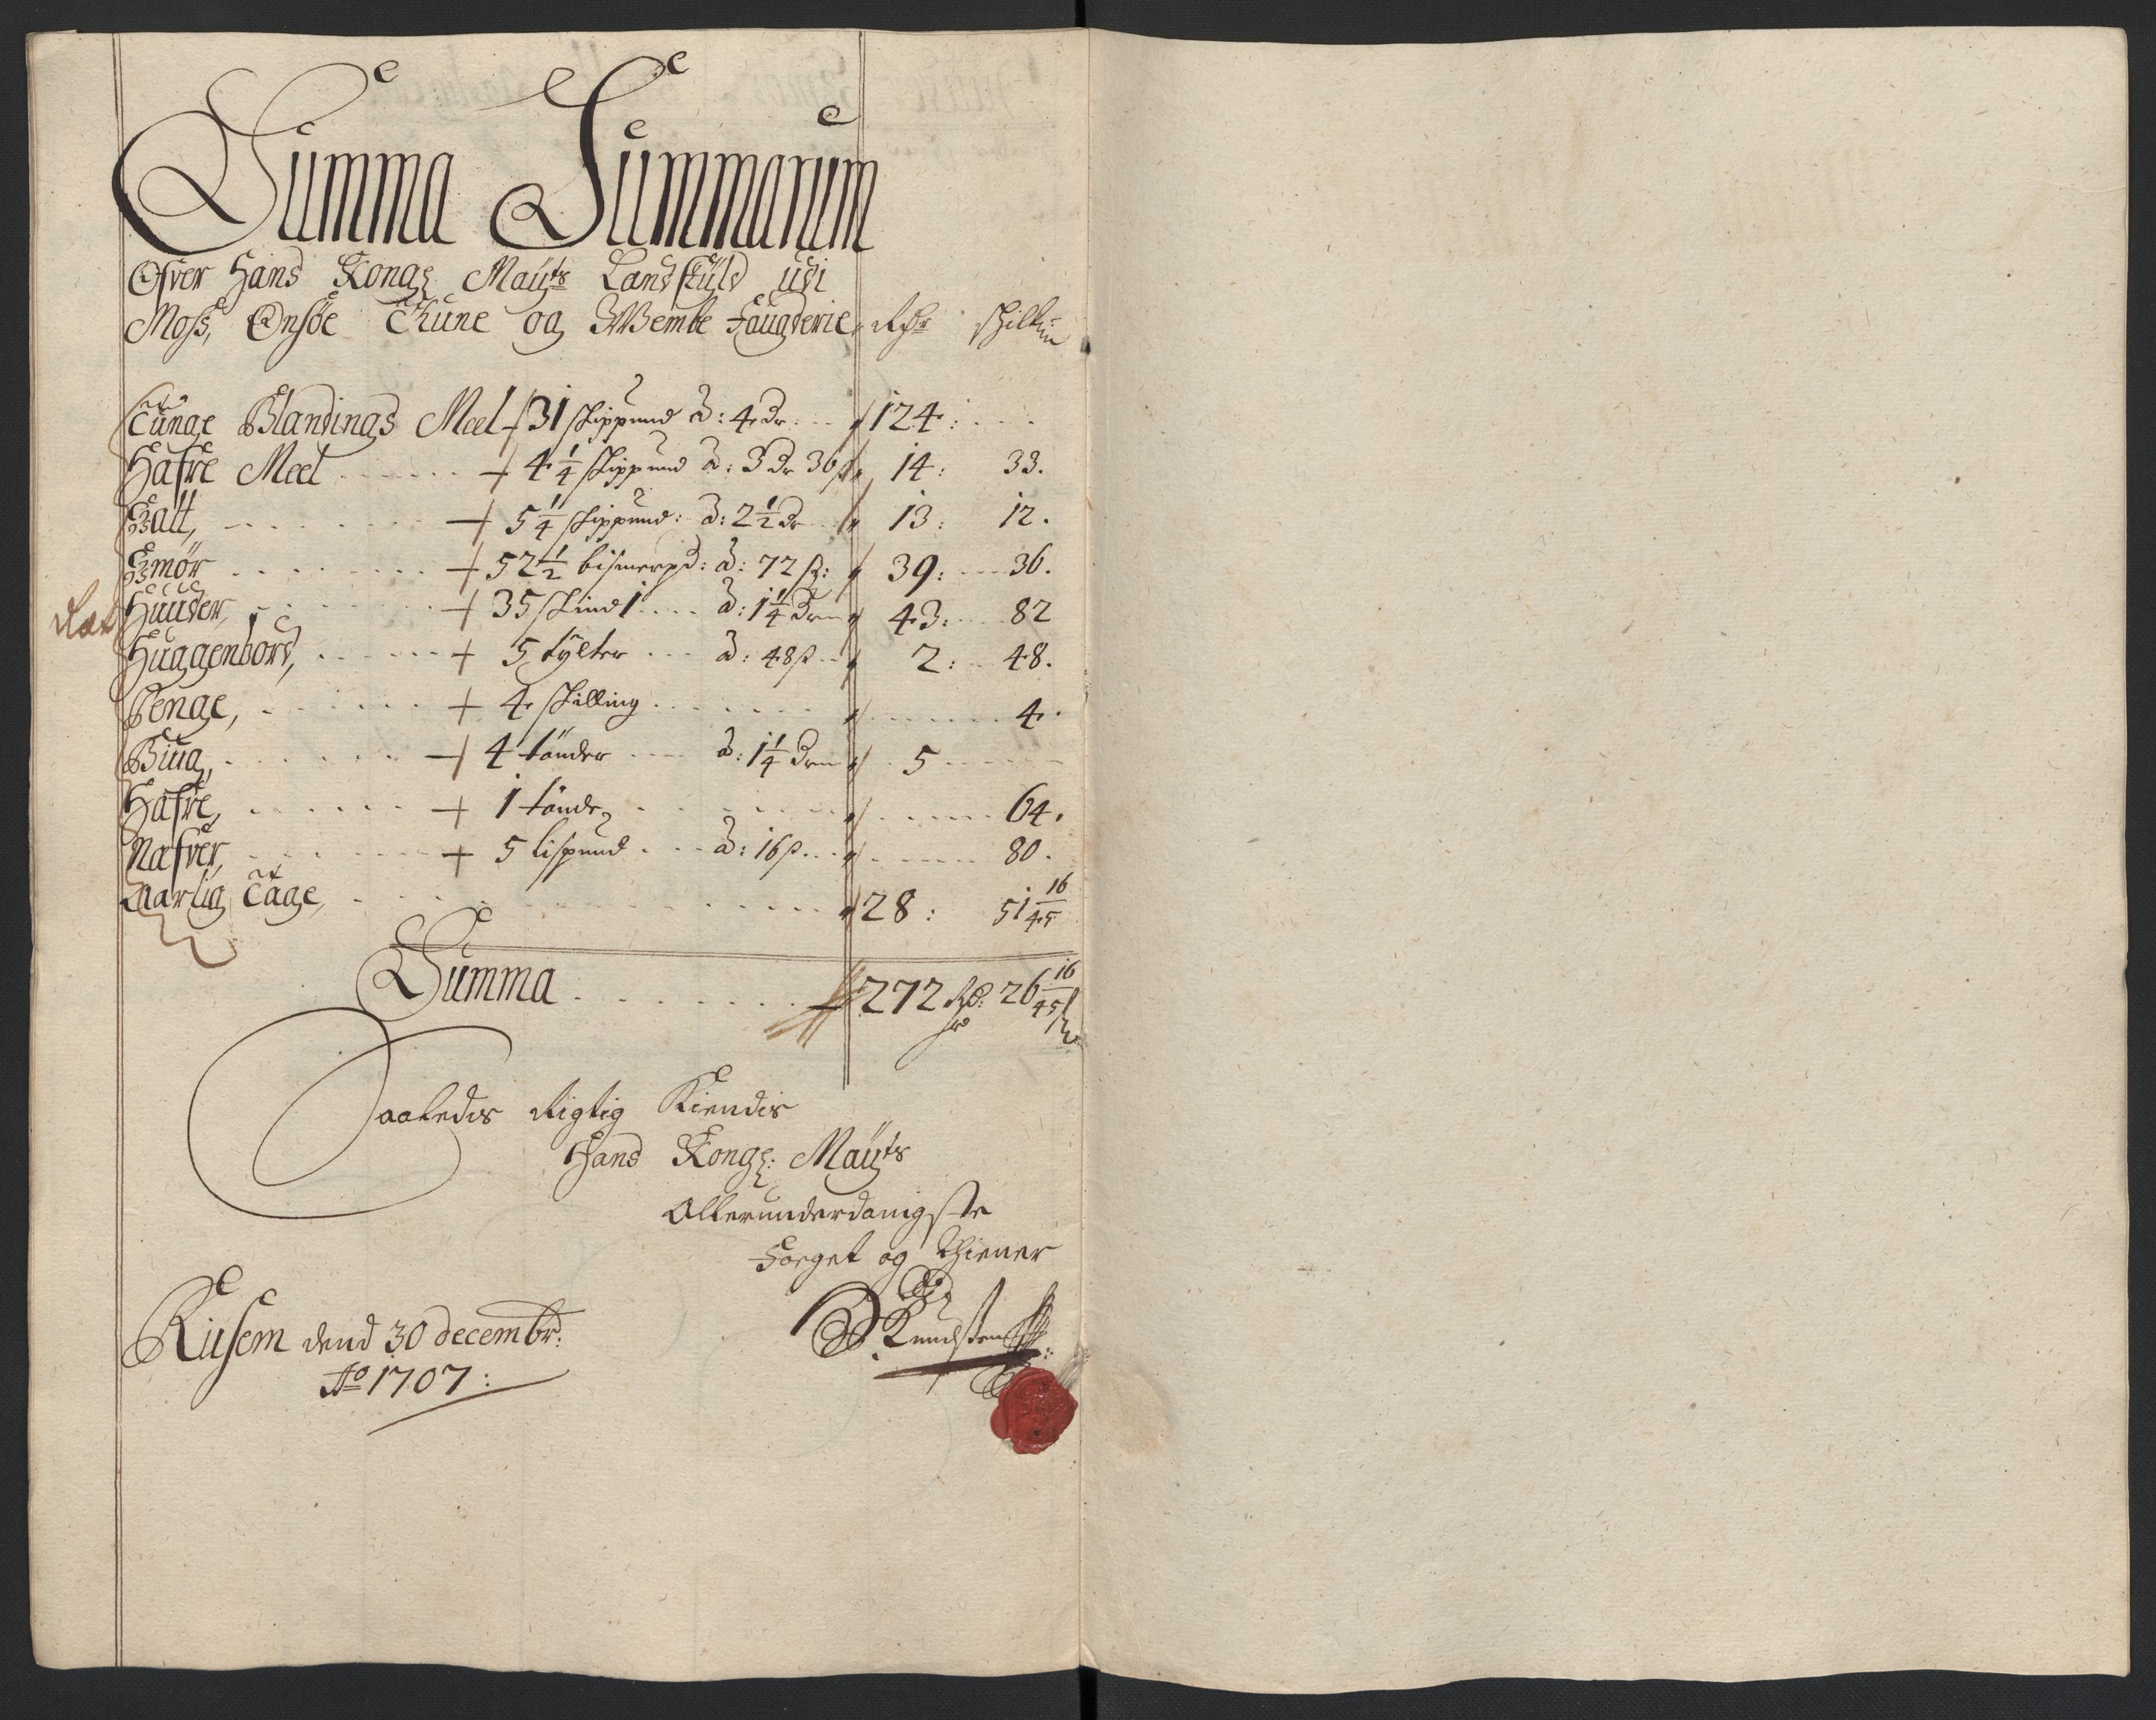 Summa Summarum
Ofver Hans Kong: Maÿts Landskÿld udi
Moss, Onsöe Thune og Wembe Faugderie, Rdr skilling
Tunge Blandings Meel 31 skippund a: 4 dr. 124:
Hafre Meel 4 1/4 skippund a: 3 dr 36 s 14: 33.
Salt, 5 1/4 skippund: a: 2 1/2 dr 13: 12.
Smör 52 1/2 bismerpd: a: 72 s: 39: 36.
Huuder, 35 skind a: 1 1/4 dr 43: 82
Huggenbord, 5 tÿlter a: 48 s 2: 48.
Penge, 4 skilling 4.
Biug, 4 tönder a: 1 1/4 dr 5
Hafre, 1 tönde 64.
Nafver, 5 lispund a: 16 s 80.
Aarlig Tage, 28: 51 16/45
Summa 272 Rd: 26 16/45 s
Saaledis Rigtig Kiendis
Hans Kong: Maÿts
Allerunderdanigste
Foeget og Thiener
Knudsten
Kusem dend 30 decembr:
Ao 1707: